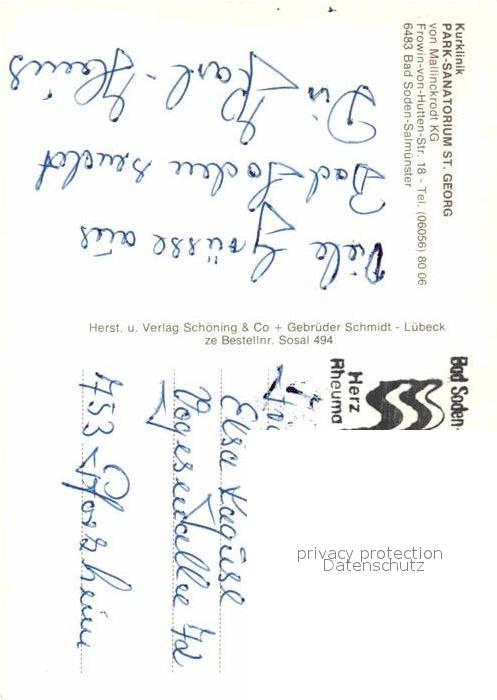 Kurklinik
PARK-SANATORIUM ST. GEORG
von Mallinckrodt KG
Frowin-von-Hutten-Str. 18 - Tel. (06056) 80 06
6483 Bad Soden-Salmünster
Viele Grüsse aus
Bad Soden sendet
Dir Karl-Heins
Herst. u. Verlag Schöning & Co + Gebrüder Schmidt - Lübeck
ze Bestellnr. Sosal 494
Bad Soden-
Herz
Rheuma
Elsa
Vogesenallee 72
753 Pforzheim
privacy protection
Datenschutz